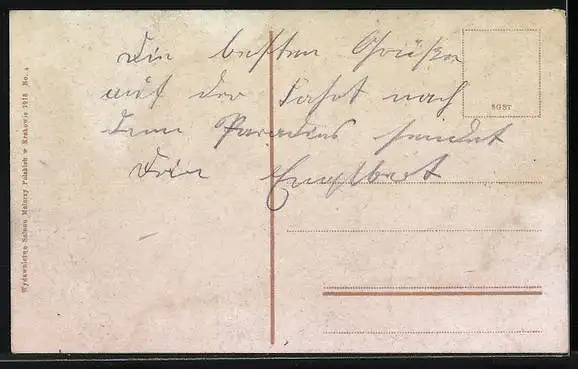 Die besten Grüße
auf der Fahrt nach
dem Paradies sendet
Dein Englbert
SGST
Wydawnictwo Salonu Malarzy Polskich w Krakowie 1915 No.